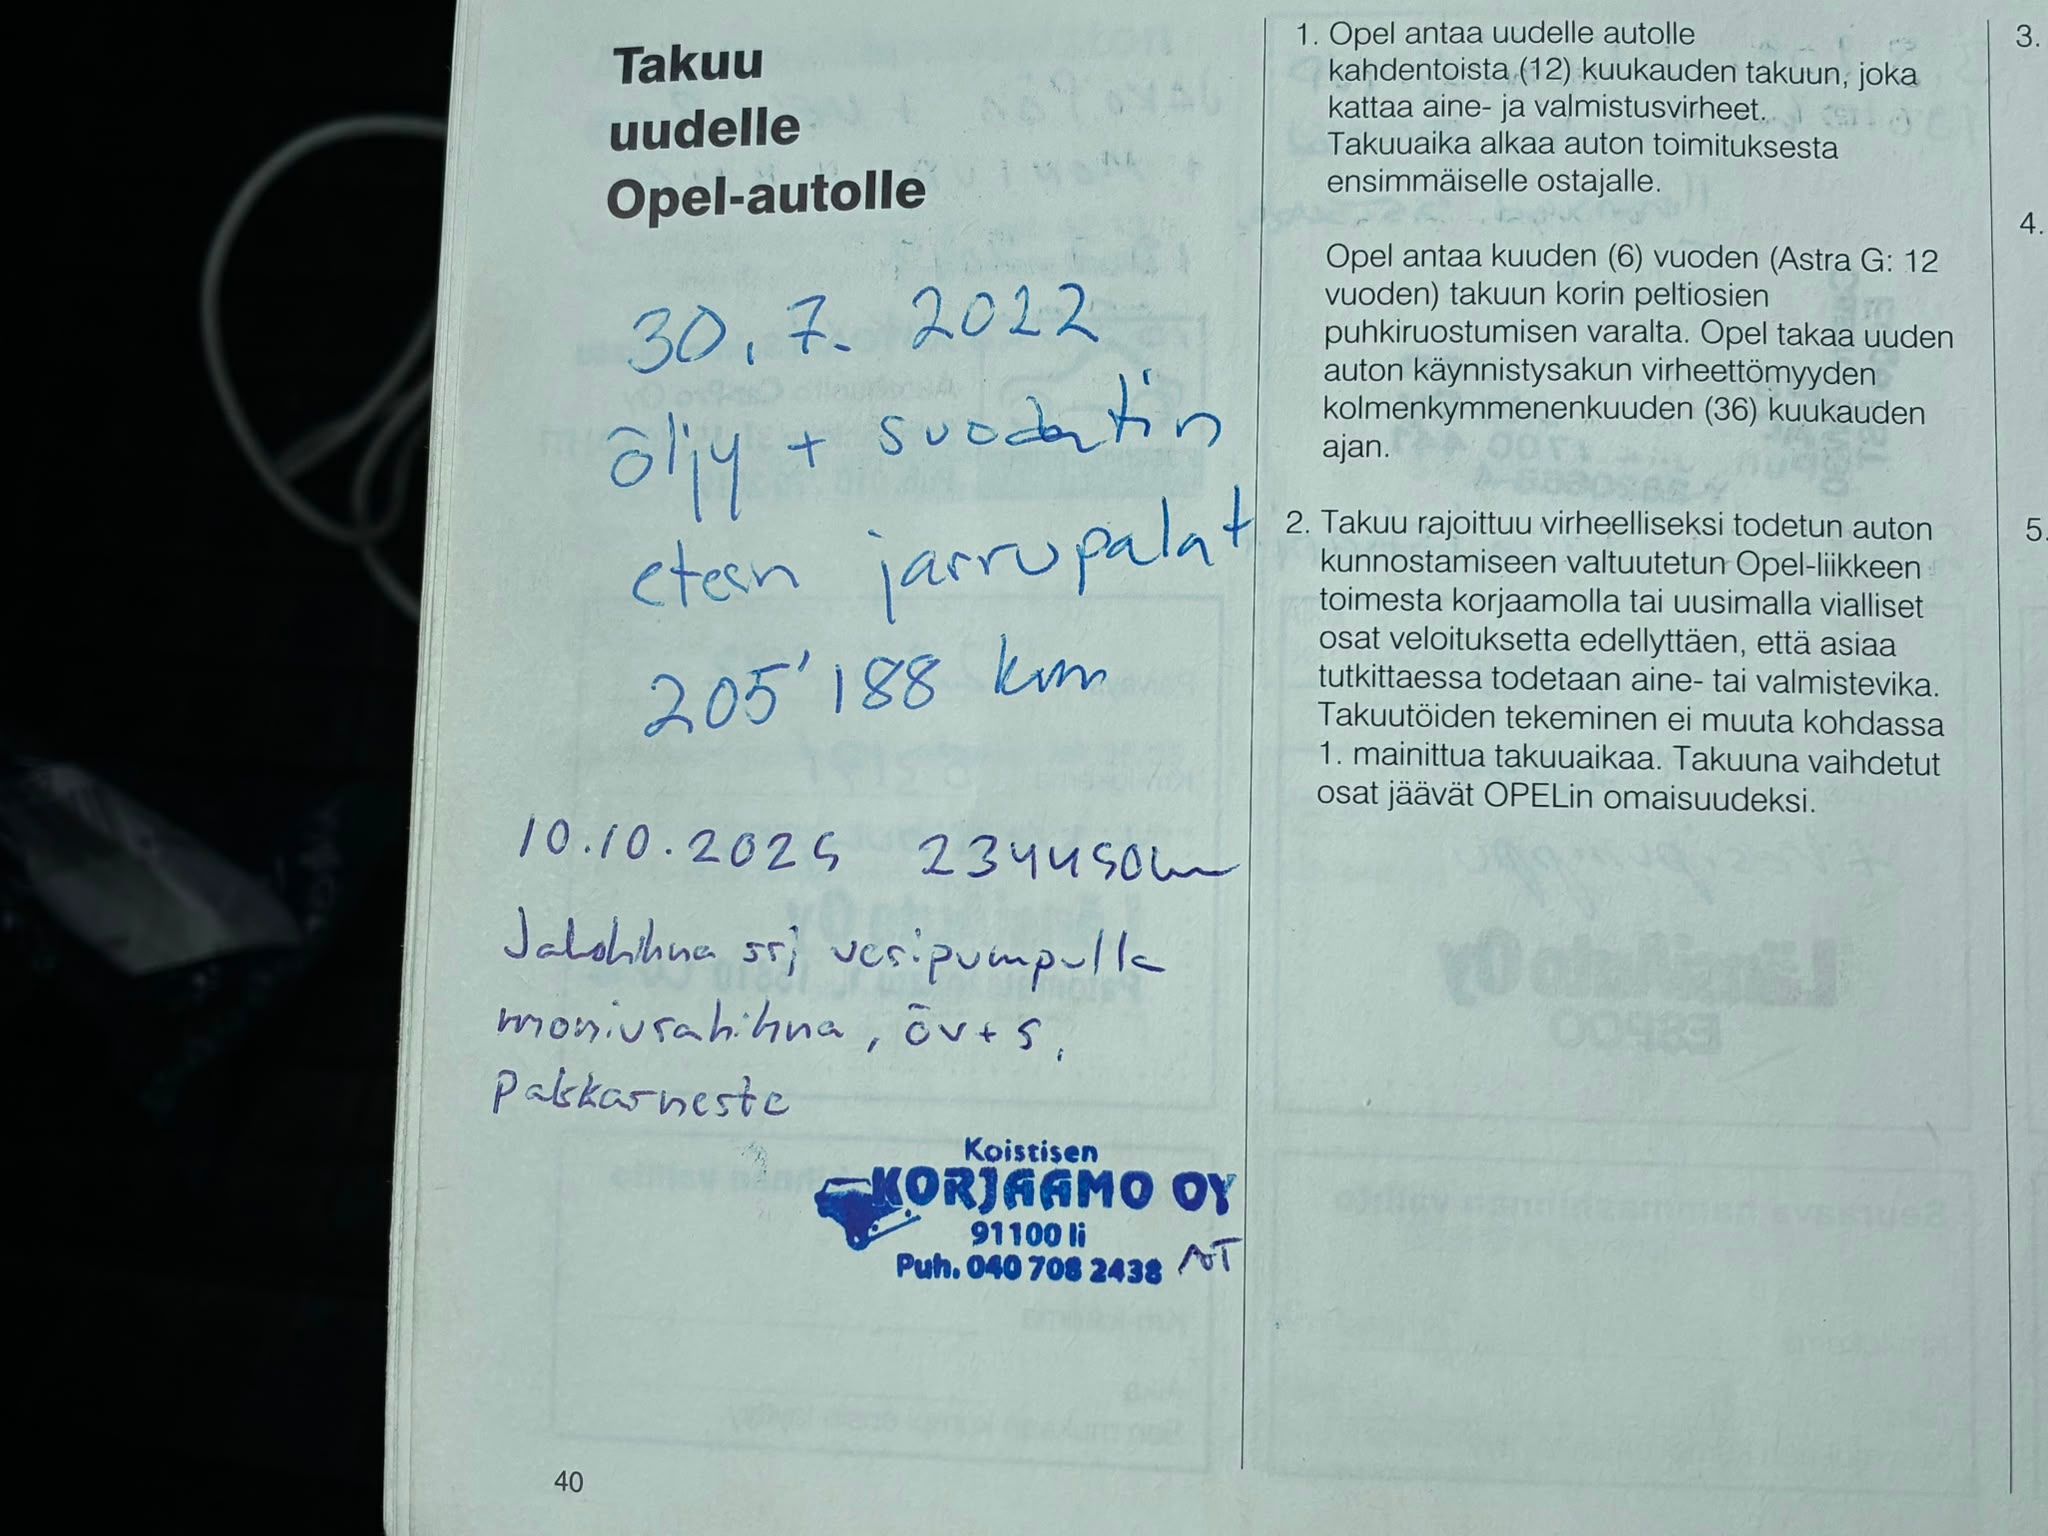 Takuu
uudelle
Opel-autolle
30.7.2022
öljy + suodatin
eteen jarrupalat
205'188 km
10.10.2025 234450km
Jakohihna srj vesipumpulla
moniurahihna, öv+s,
Pakkasneste
Koistisen
KORJAAMO OY
91100 Ii
Puh. 040 708 2438
40
1. Opel antaa uudelle autolle
kahdentoista (12) kuukauden takuun, joka
kattaa aine- ja valmistusvirheet.
Takuuaika alkaa auton toimituksesta
ensimmäiselle ostajalle.
Opel antaa kuuden (6) vuoden (Astra G: 12
vuoden) takuun korin peltiosien
puhkiruostumisen varalta. Opel takaa uuden
auton käynnistysakun virheettömyyden
kolmenkymmenenkuuden (36) kuukauden
ajan.
2. Takuu rajoittuu virheelliseksi todetun auton
kunnostamiseen valtuutetun Opel-liikkeen
toimesta korjaamolla tai uusimalla vialliset
osat veloituksetta edellyttäen, että asiaa
tutkittaessa todetaan aine- tai valmistevika.
Takuutöiden tekeminen ei muuta kohdassa
1. mainittua takuuaikaa. Takuuna vaihdetut
osat jäävät OPELin omaisuudeksi.
3.
4.
5.